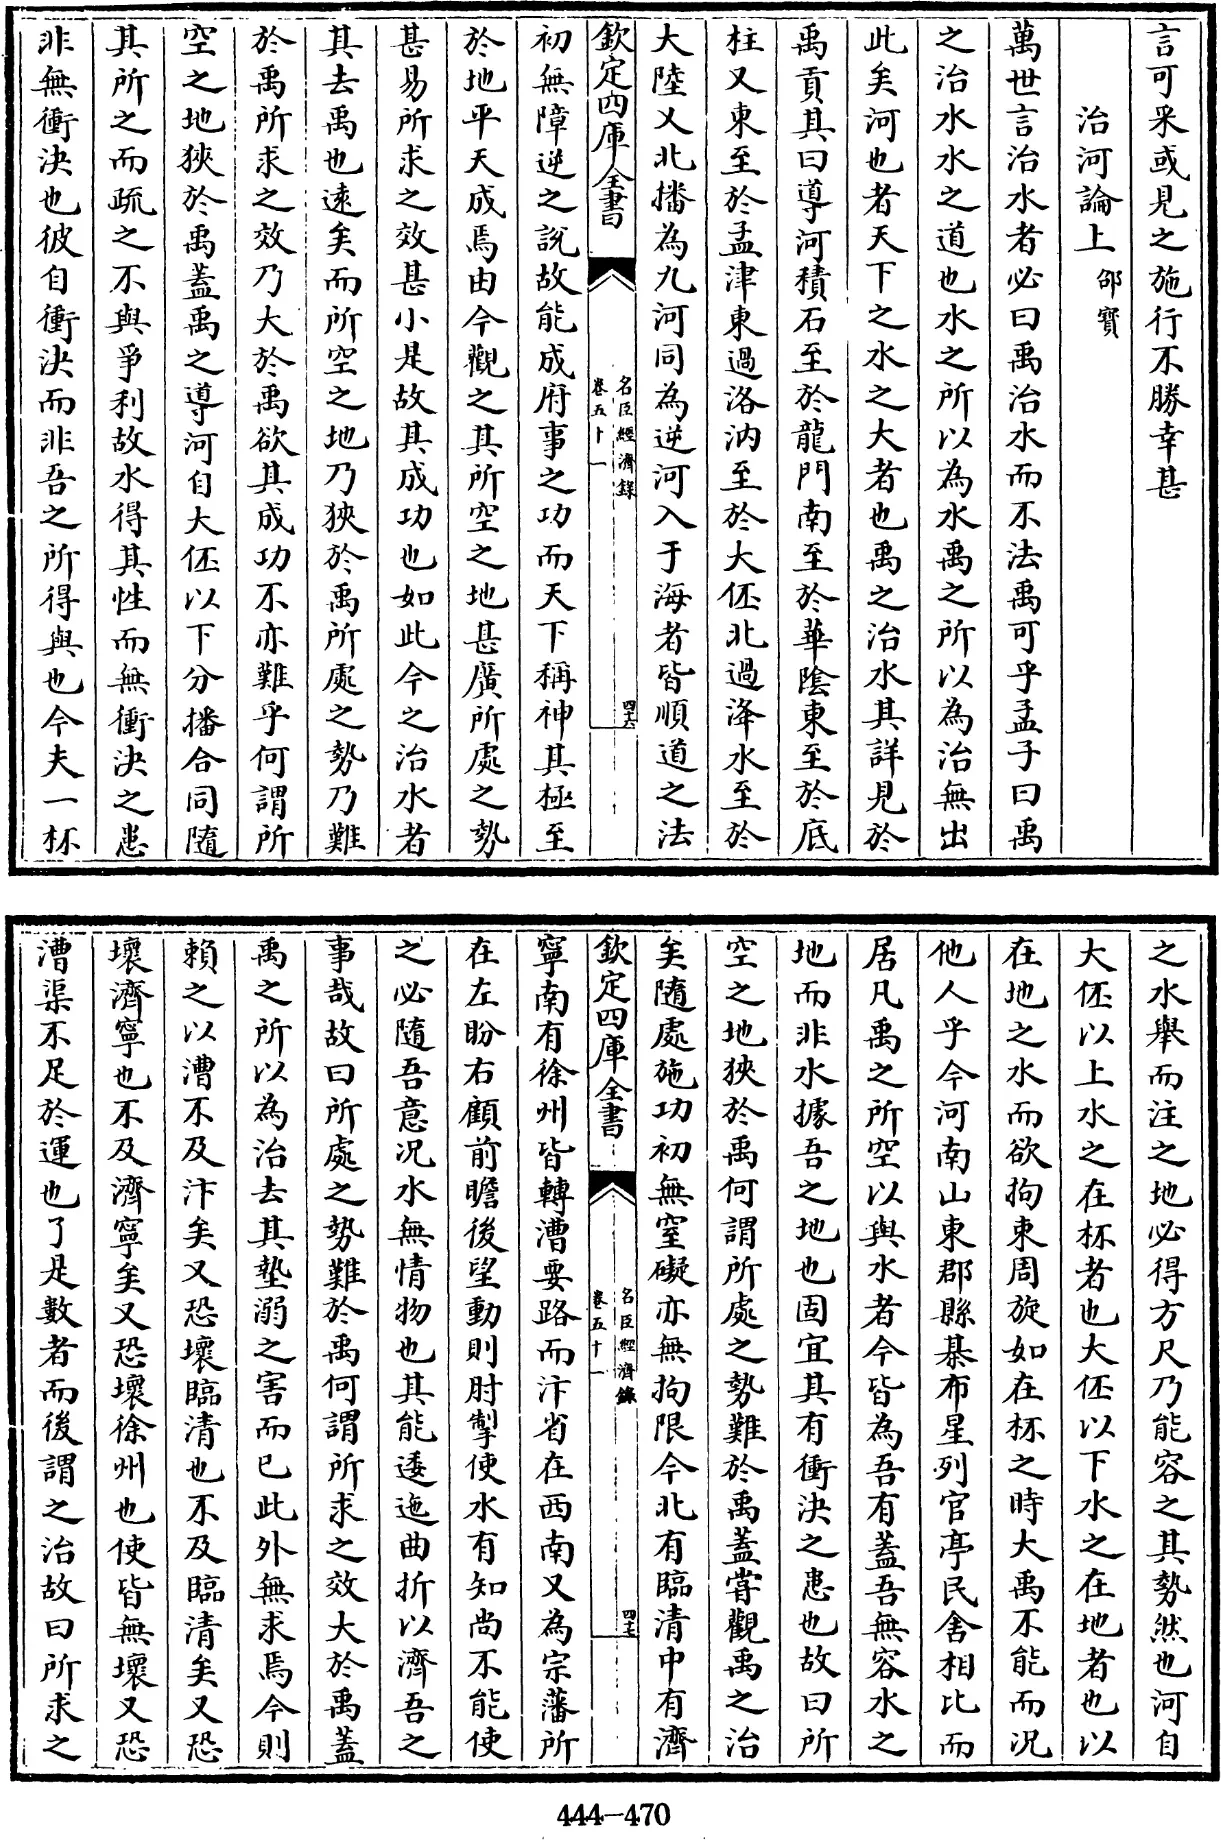 言可采或見之施行不勝幸甚
治河論上 邵寳
萬世言治水者必曰禹治水而不法禹可乎孟子曰禹
之治水水之道也水之所以為水禹之所以為治無出
此矣河也者天下之水之大者也禹之治水其詳見於
禹貢其曰導河積石至於龍門南至於華隂東至於底
柱又東至於孟津東過洛汭至於大伾北過洚水至於
大陸又北播為九河同為逆河入于海者皆順道之法
欽定四庫全書
名臣經濟録
卷五十一
四六
初無障逆之說故能成府事之功而天下稱神其極至
於地平天成焉由今觀之其所空之地甚廣所處之勢
甚易所求之效甚小是故其成功也如此今之治水者
其去禹也遠矣而所空之地乃狹於禹所處之勢乃難
於禹所求之效乃大於禹欲其成功不亦難乎何謂所
空之地狹於禹蓋禹之導河自大伾以下分播合同隨
其所之而疏之不與爭利故水得其性而無衝決之患
非無衝決也彼自衝決而非吾之所得與也今夫一杯
之水舉而注之地必得方尺乃能容之其勢然也河自
大伾以上水之在杯者也大伾以下水之在地者也以
在地之水而欲拘束周旋如在杯之時大禹不能而況
他人乎今河南山東郡縣棊布星列官亭民舍相比而
居凡禹之所空以與水者今皆為吾有蓋吾無容水之
地而非水據吾之地也固宜其有衝決之患也故曰所
空之地狹於禹何謂所處之勢難於禹蓋嘗觀禹之治
矣隨處施功初無窒礙亦無拘限今北有臨清中有濟
欽定四庫全書
名臣經濟錄
卷五十一
四七
寧南有徐州皆轉漕要路而汴省在西南又為宗藩所
在左盼右顧前瞻後望動則肘掣使水有知尚不能使
之必隨吾意況水無情物也其能逶迤曲折以濟吾之
事哉故曰所處之勢難於禹何謂所求之效大於禹蓋
禹之所以為治去其墊溺之害而已此外無求焉今則
賴之以漕不及汴矣又恐壞臨清也不及臨清矣又恐
壞濟寧也不及濟寧矣又恐壞徐州也使皆無壞又恐
漕渠不足於運也了是數者而後謂之治故曰所求之
444-470